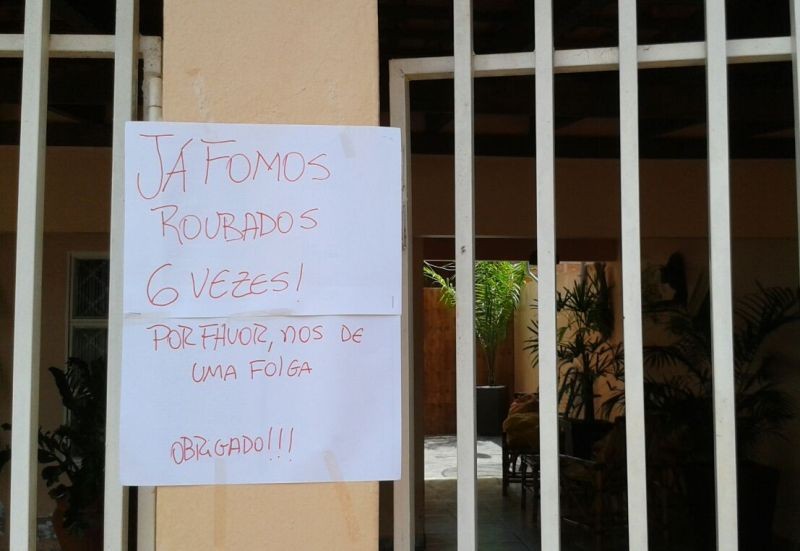 JÁ FOMOS
ROUBADOS
6 VEZES!
POR FAVOR, NOS DE
UMA FOLGA
OBRIGADO!!!